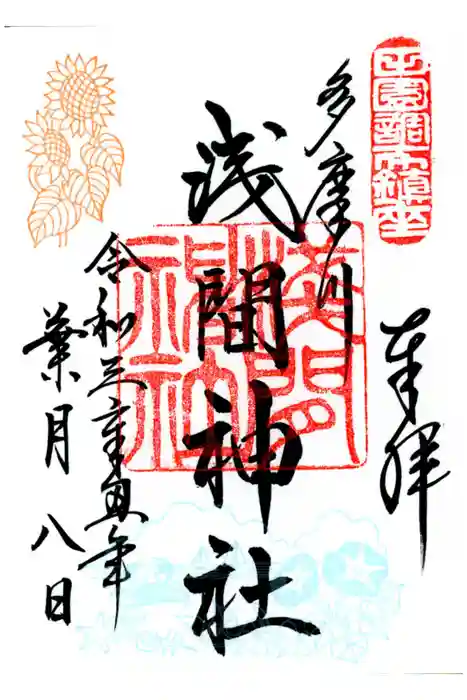 田園調布鎮座
奉拝
多摩川
浅間神社
令和三辛丑年
葉月八日